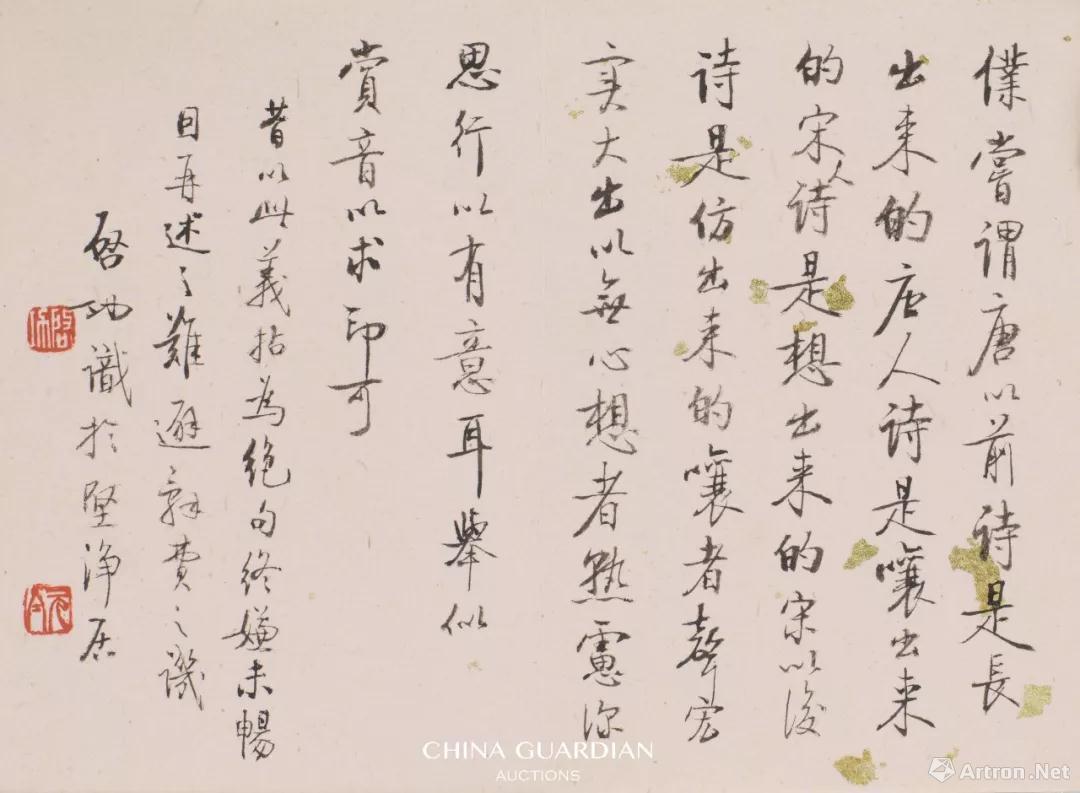 僕嘗謂唐以前詩是長
出来的唐人詩是嚷出来
的宋人詩是想出来的宋以後
詩是仿出来的嚷者聲宏
实大出以無心想者熟慮深
思行以有意耳舉似
賞音以求印可
昔以此義拈為絶句終嫌未暢
因再述之難避辞費之譏
啓功識於堅淨居
啓功
元白
CHINA GUARDIAN
AUCTIONS
Artron.Net